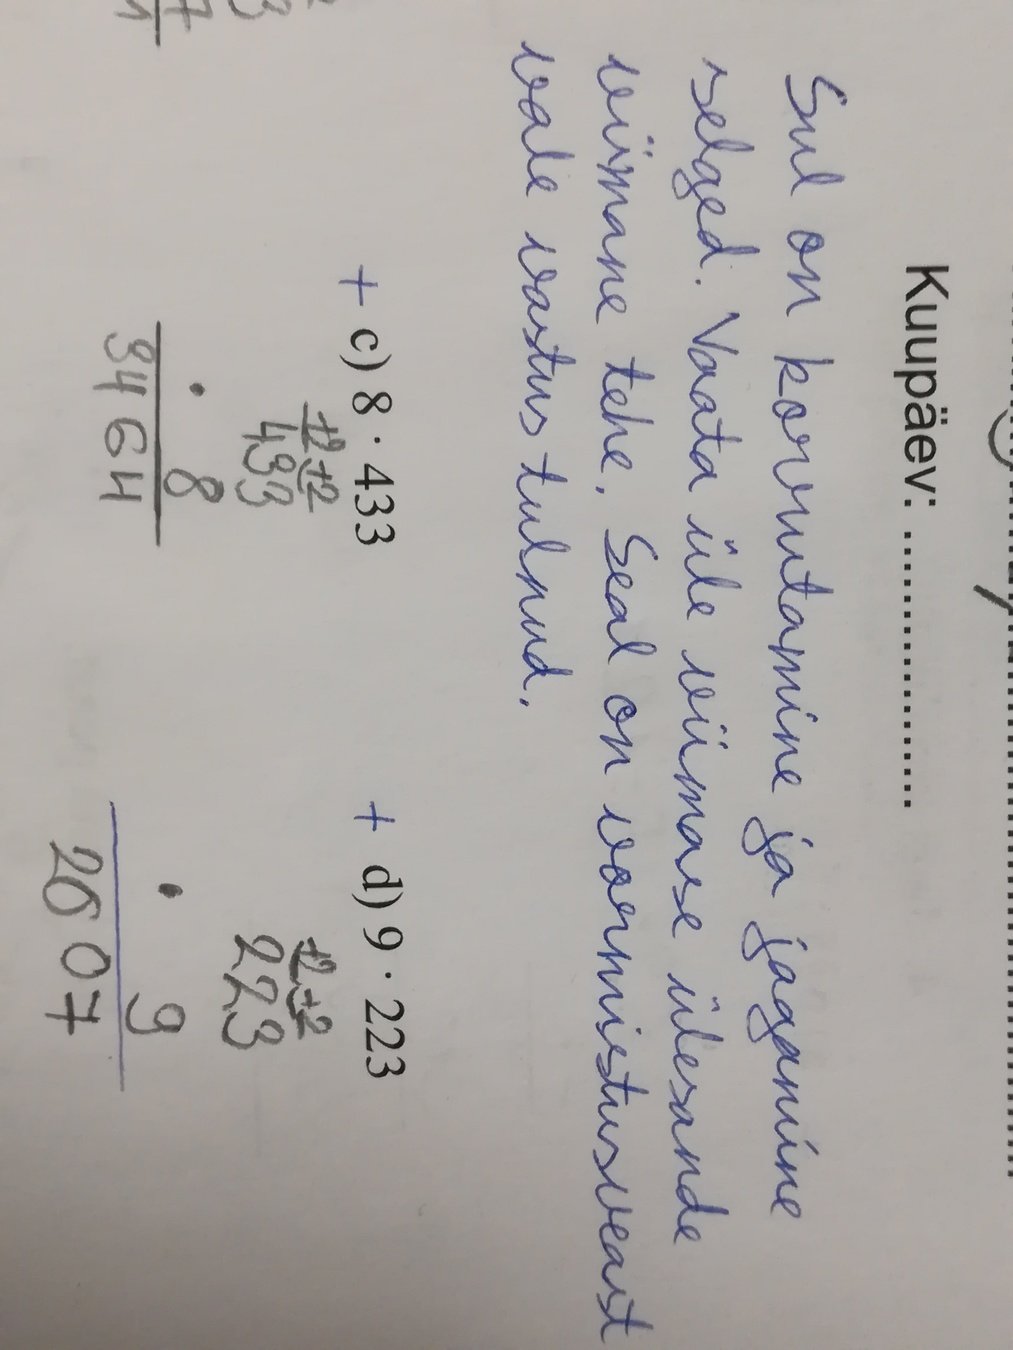 Kuupäev: ........................
Sul on korrutamine ja jagamine
selged. Vaata üle viimase ülesande
viimane tehe. Seal on vormistusveast
vale vastus tulnud.
+ c) 8 · 433 + d) 9 · 223
+2 +2 +2 +2
433 223
· 8 · 9
3464 2007